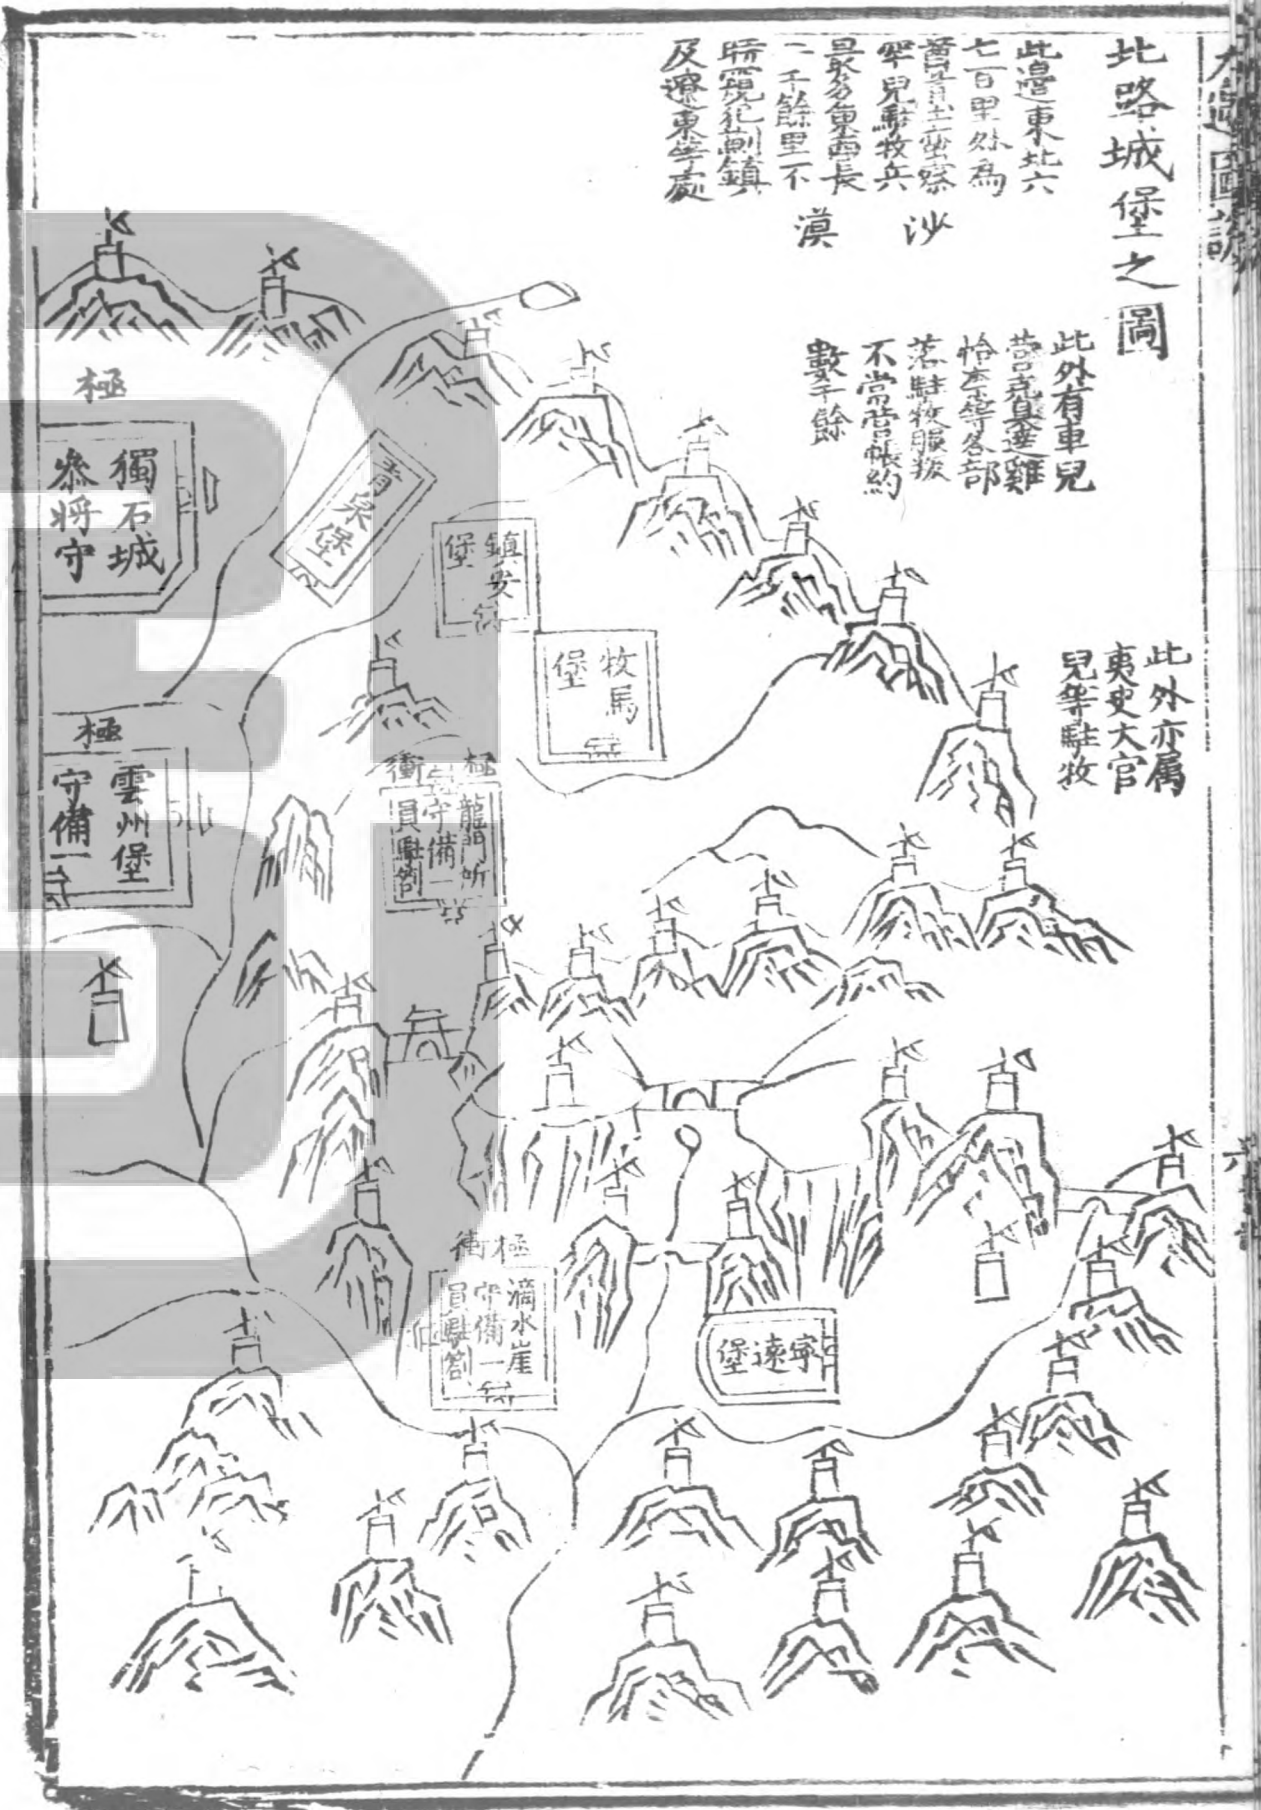 北路城堡之圖
此邊東北六
七百里外爲
舊青土蠻察
罕兒駐牧兵
最多東西長
二千餘里不
時窺犯薊鎮
及遼東等處
沙漠
此外有車兒
營克臭達雞
恰本等各部
落駐牧服叛
不常營帳約
數千餘
此外亦属
夷史大官
兒等駐牧
極
獨石城
叅將守
青泉堡
鎮安
堡
牧馬
堡
極
雲州堡
守備一
極衝
龍門所
守備一
員駐劄
極衝
滴水崖
守備一
員駐劄
寧遠堡